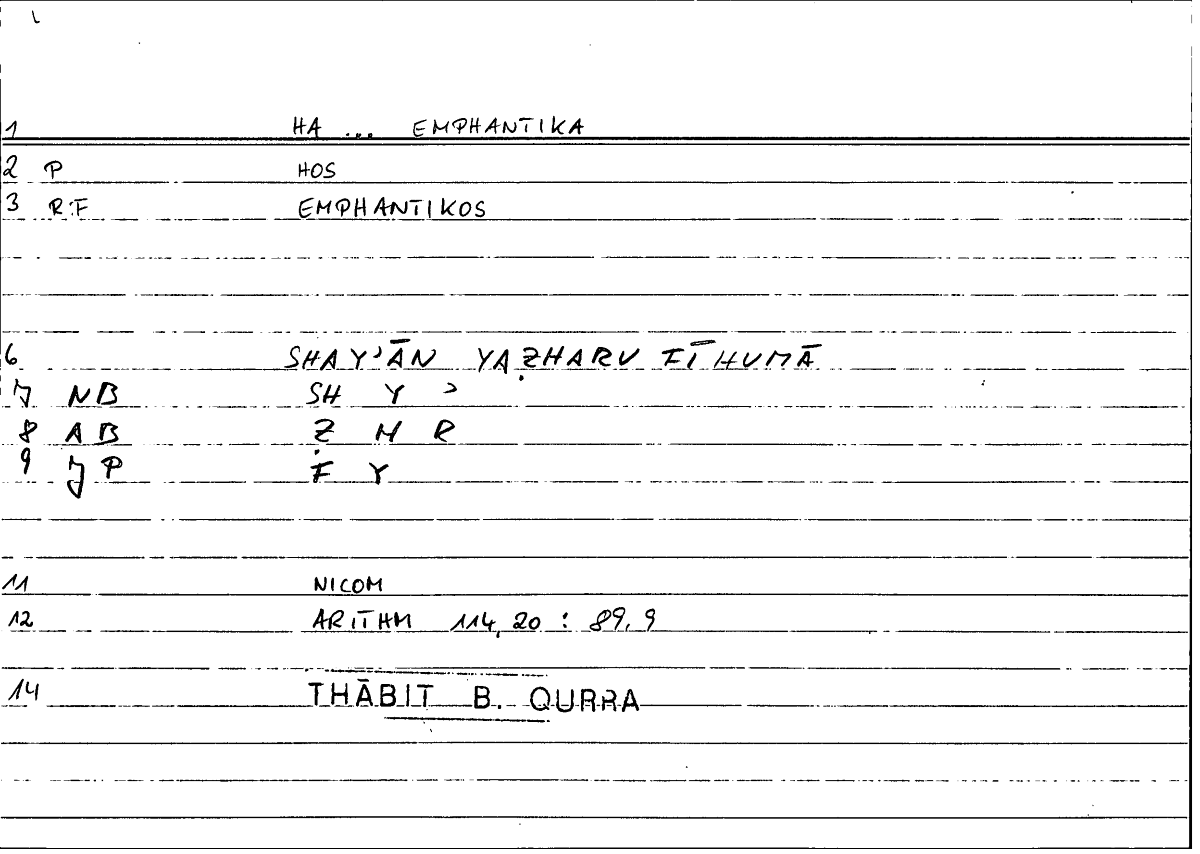 1 HA ... EMPHANTIKA
2 P HOS
3 RF EMPHANTIKOS
6 SHAY'ĀN YAẒHARU FĪHUMĀ
7 NB SH Y '
8 AB Ẓ H R
9 JP F Y
11 NICOM
12 ARITHM 114,20 : 89,9
14 THĀBIT B. QURRA